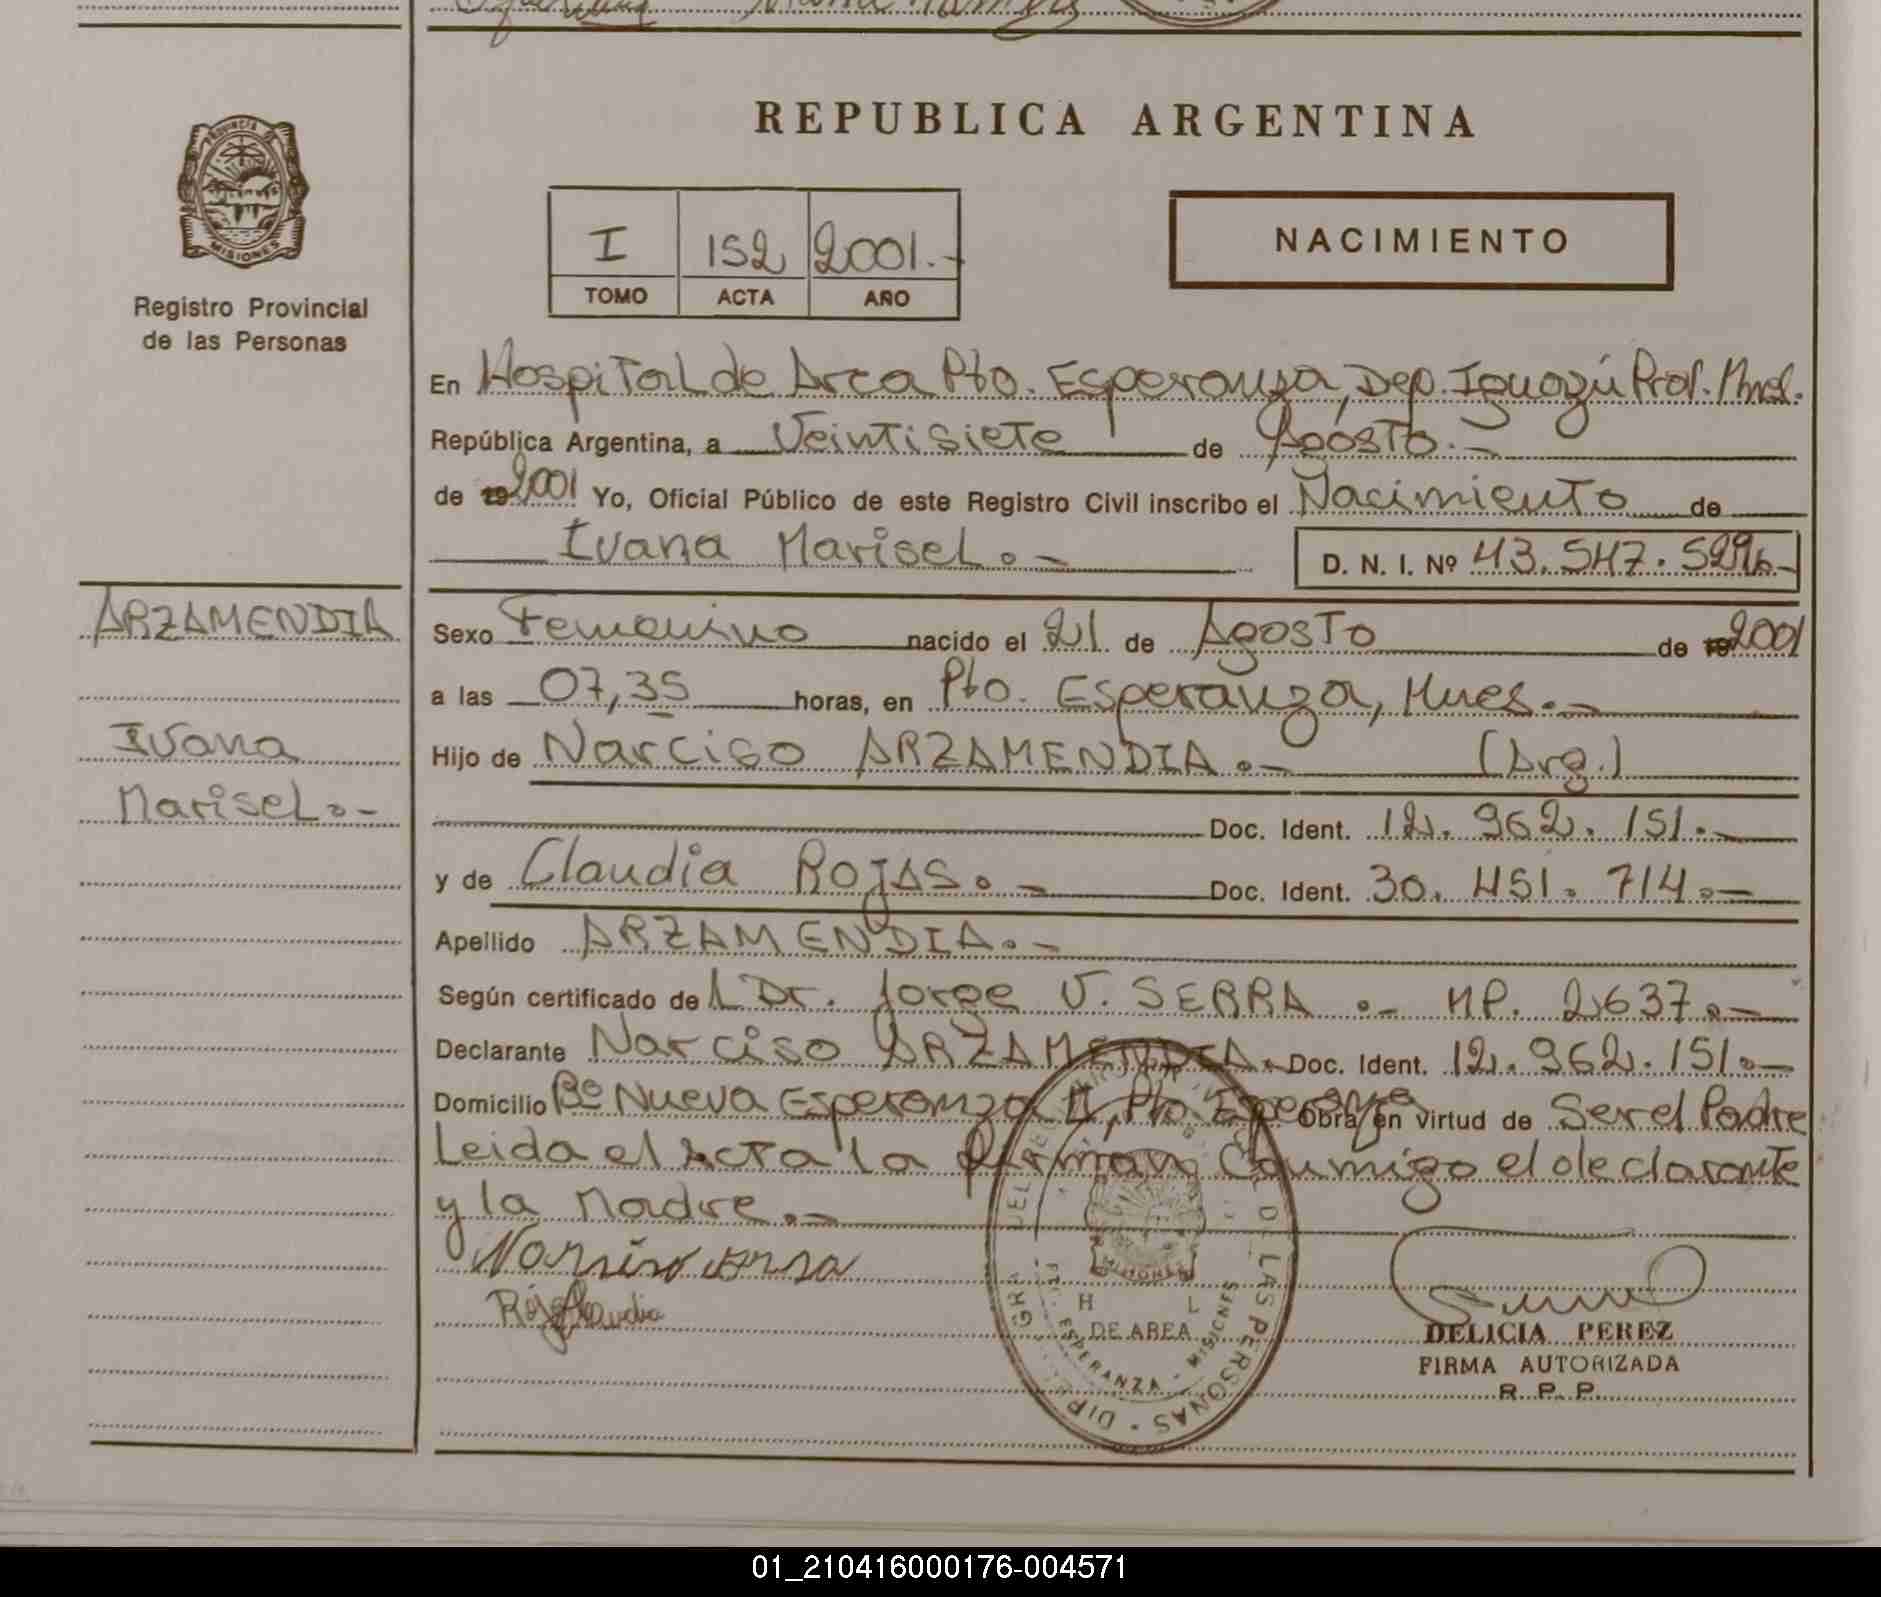 REPUBLICA ARGENTINA
PROVINCIA DE
MISIONES
Registro Provincial
de las Personas
I 152 2001.-
TOMO ACTA AÑO
NACIMIENTO
En Hospital de Area Pto. Esperanza, Dep. Iguazú Prov. Mnes.
República Argentina, a Veintisiete de Agosto.-
de 19 2001 Yo, Oficial Público de este Registro Civil inscribo el Nacimiento de
Ivana Marisel.-
D. N. I. Nº 43.547.
ARZAMENDIA
Ivana
Marisel.-
Sexo Femenino nacido el 21 de Agosto de 19 2001
a las 07,35 horas, en Pto. Esperanza, Mnes.-
Hijo de Narciso ARZAMENDIA.- (Arg.)
Doc. Ident. 12.962.151.-
y de Claudia ROJAS.- Doc. Ident. 30.451.714.-
Apellido ARZAMENDIA.-
Según certificado del Dr. Jorge V. SERRA.- MP. 2637.-
Declarante Narciso ARZAMENDIA.- Doc. Ident. 12.962.151.-
Domicilio Bº Nueva Esperanza II, Pto. Esperanza Obra en virtud de Ser el Padre
Leida el Acta la firman Conmigo el declarante
y la Madre.-
Narsiso Arsa
Rojas Claudia
H L
DE AREA
ESPERANZA - MISIONES
DE LAS PERSONAS
MISIONES
DELICIA PEREZ
FIRMA AUTORIZADA
R. P. P.
01_210416000176-004571